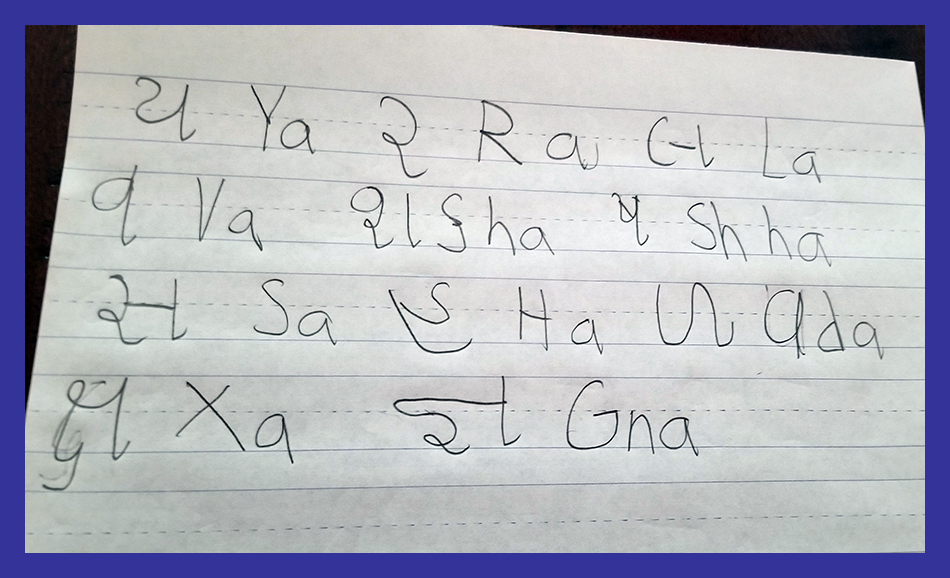 ય Ya ર Ra લ La
વ Va શ Sha ષ Shha
સ Sa હ Ha ળ Ada
ક્ષ Xa જ્ઞ Gna